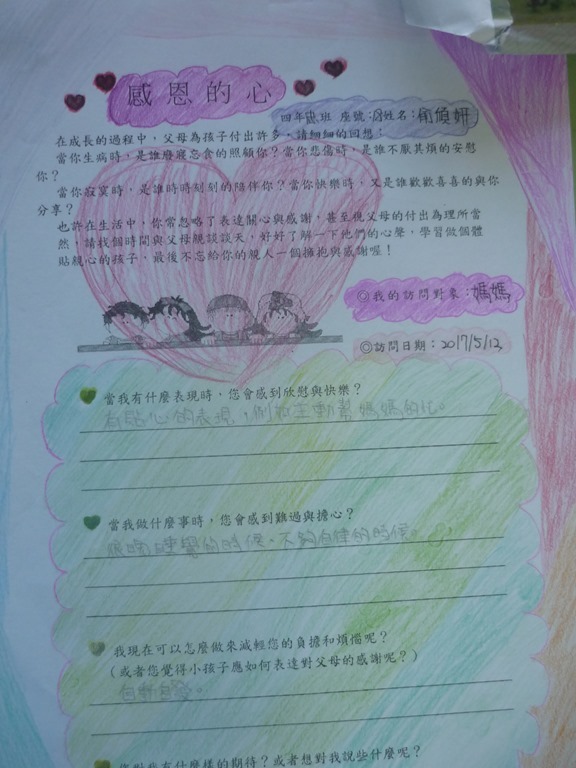 感恩的心
四年 班 座號: 姓名:
在成長的過程中，父母為孩子付出許多，請細細的回想：
當你生病時，是誰廢寢忘食的照顧你？當你悲傷時，是誰不厭其煩的安慰
你？
當你寂寞時，是誰時時刻刻的陪伴你？當你快樂時，又是誰歡歡喜喜的與你
分享？
也許在生活中，你常忽略了表達關心與感謝，甚至視父母的付出為理所當
然，請找個時間與父母親談談天，好好了解一下他們的心聲，學習做個體
貼親心的孩子，最後不忘給你的親人一個擁抱與感謝喔！
◎我的訪問對象：媽媽
◎訪問日期：2017/5/12
當我有什麼表現時，您會感到欣慰與快樂？
有貼心的表現，例如主動幫媽媽的忙。
當我做什麼事時，您會感到難過與擔心？
很晚睡覺的時候、不夠自律的時候。
我現在可以怎麼做來減輕您的負擔和煩惱呢？
（或者您覺得小孩子應如何表達對父母的感謝呢？）
自動自發。
您對我有什麼樣的期待？或者想對我說些什麼呢？